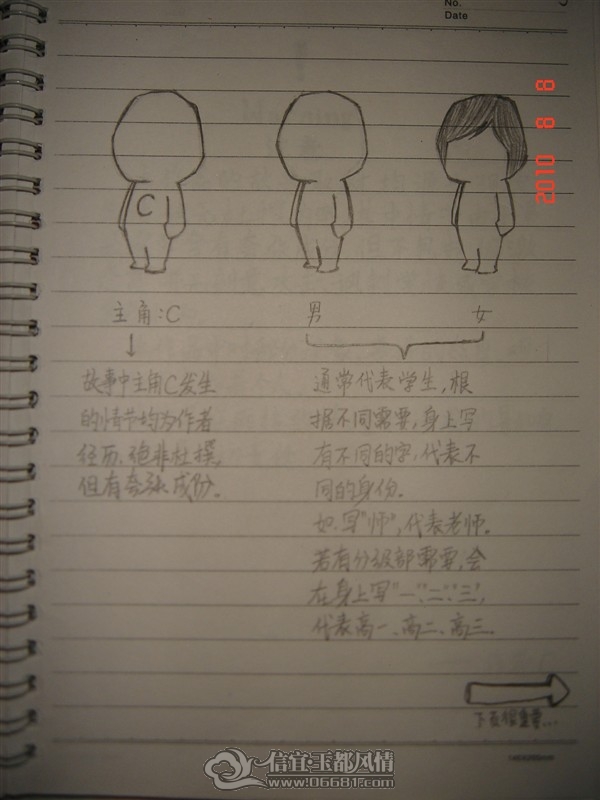 No.
Date
2010 8 8
C
主角:C
男
女
故事中主角C发生
的情节均为作者
经历,绝非杜撰,
但有夸张成份。
通常代表学生,根
据不同需要,身上写
有不同的字,代表不
同的身份.
如.写"师",代表老师.
若有分级部需要,会
在身上写"一""二""三",
代表高一、高二、高三.
信宜·玉都风情
www.06681.com